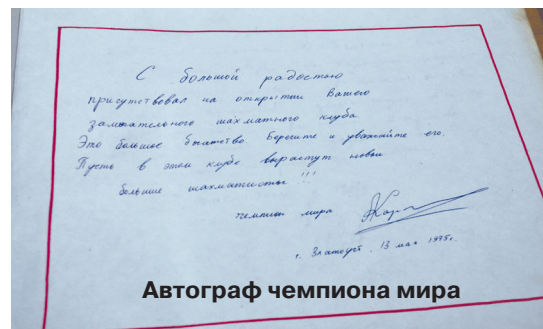 С большой радостью
присутствовал на открытии Вашего
замечательного шахматного клуба.
Это большое богатство. Берегите и уважайте его.
Пусть в этом клубе вырастут новые
большие шахматисты!!!
Чемпион мира
г. Златоуст, 13 мая 1995г.
Автограф чемпиона мира